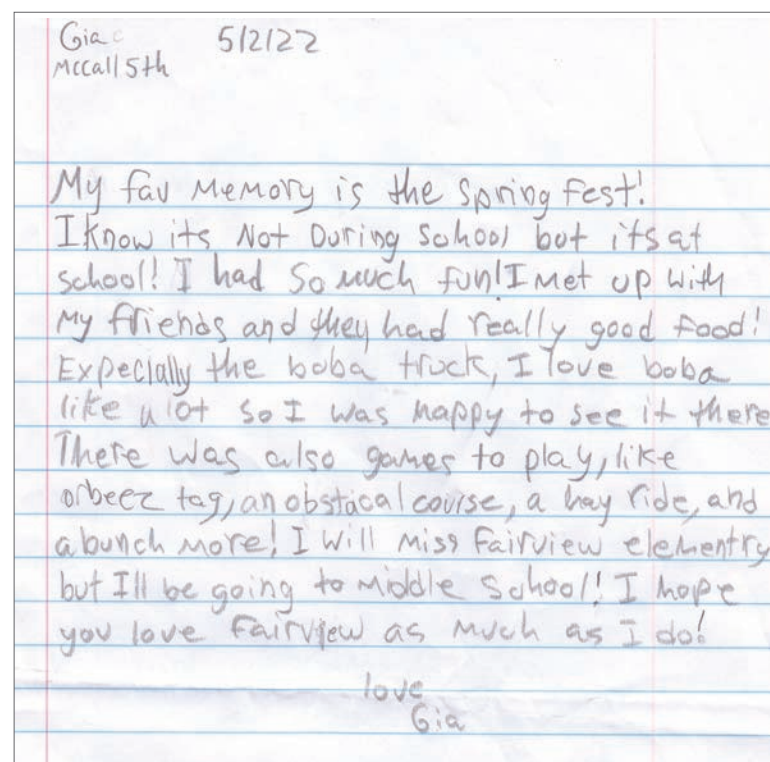 Gia 5/2/22
Mccall 5th
My fav memory is the Spring Fest!
I know its Not During School but its at
school! I had so much fun! I met up with
my friends and they had really good food!
Expecially the boba truck, I love boba
like a lot so I was happy to see it there
There was also games to play, like
orbeez tag, an obstacal course, a hay ride, and
a bunch more! I will miss Fairview elementry
but Ill be going to middle School! I hope
you love Fairview as much as I do!
love
Gia